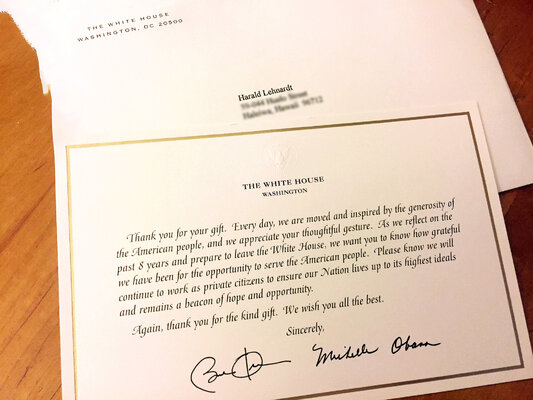 THE WHITE HOUSE
WASHINGTON, DC 20500
Harald Lehnardt
THE WHITE HOUSE
WASHINGTON
Thank you for your gift. Every day, we are moved and inspired by the generosity of
the American people, and we appreciate your thoughtful gesture. As we reflect on the
past 8 years and prepare to leave the White House, we want you to know how grateful
we have been for the opportunity to serve the American people. Please know we will
continue to work as private citizens to ensure our Nation lives up to its highest ideals
and remains a beacon of hope and opportunity.
Again, thank you for the kind gift. We wish you all the best.
Sincerely,
Michelle Obama